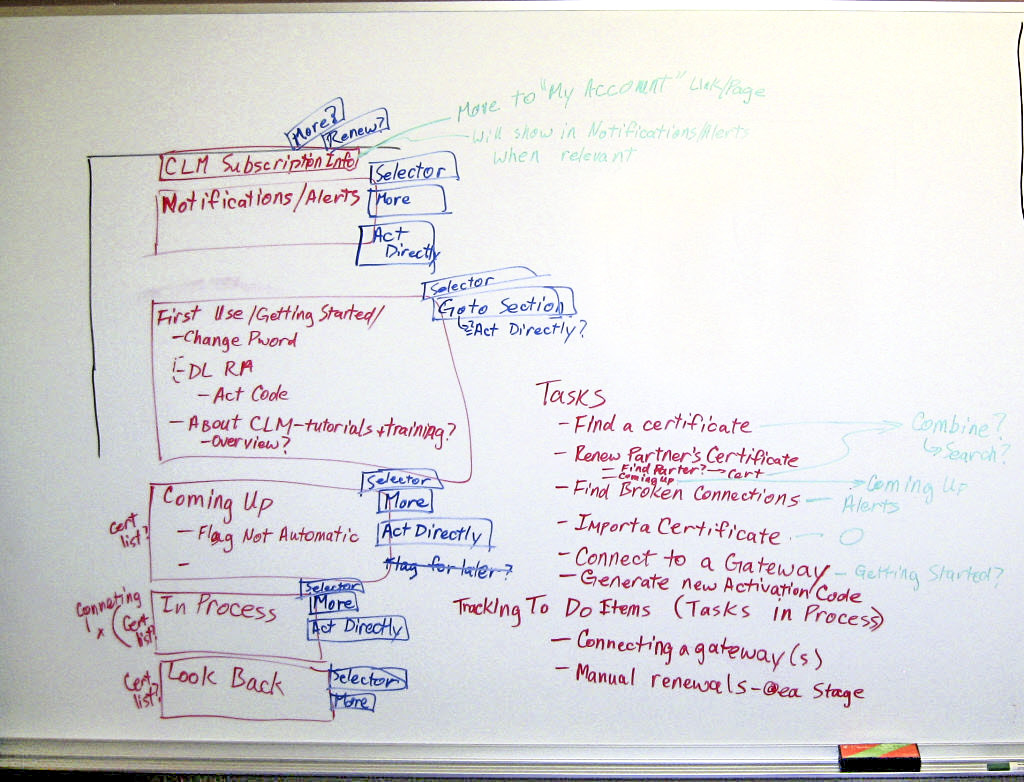 More?
Renew?
Move to "My Account" Link/Page
Will show in Notifications/Alerts
when relevant
CLM Subscription Info
Selector
Notifications/Alerts
More
Act
Directly
Selector
Goto Section
Act Directly?
First Use/Getting Started/
- Change Pword
- DL RA
- Act Code
- About CLM - tutorials + training?
- Overview?
Selector
Coming Up
More
Cert
list?
- Flag Not Automatic
Act Directly
-
Flag for later?
Selector
Connecting
In Process
More
Cert
list?
Act Directly
Look Back
Selector
Cert
list?
More
Tasks
- Find a certificate
Combine?
Search?
- Renew Partner's Certificate
- Find Parter? → Cert
- Coming Up
Coming Up
- Find Broken Connections
- Alerts
- Import a Certificate
- Connect to a Gateway
- Getting Started?
- Generate new Activation Code
Tracking To Do Items (Tasks in Process)
- Connecting a gateway(s)
- Manual renewals - @ea Stage